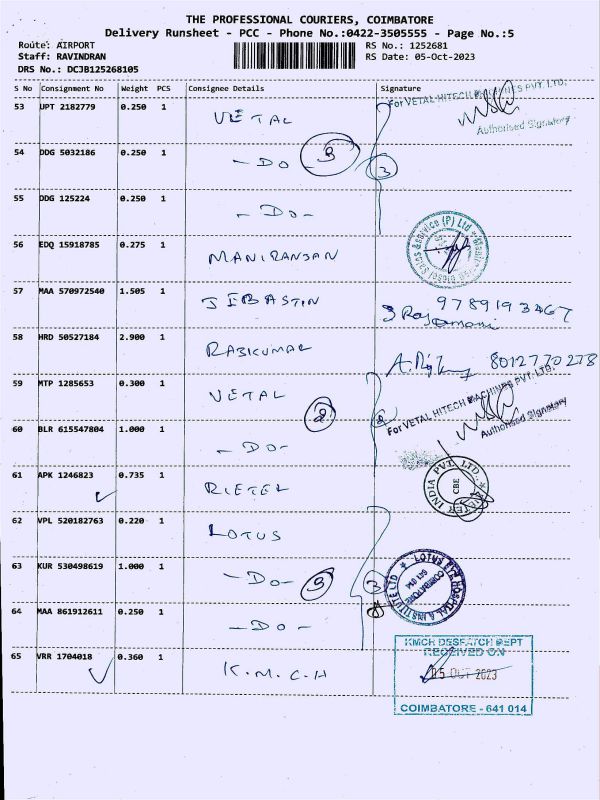 THE PROFESSIONAL COURIERS, COIMBATORE
Delivery Runsheet - PCC - Phone No.:0422-3505555 - Page No.:5
Route: AIRPORT RS No.: 1252681
Staff: RAVINDRAN RS Date: 05-Oct-2023
DRS No.: DCJB125268105
S No Consignment No Weight PCS Consignee Details Signature
53 UPT 2182779 0.250 1 VETAL For VETAL HITECH MACHINES PVT. LTD.
Authorised Signatory
54 DDG 5032186 0.250 1 - DO 3 3
55 DDG 125224 0.250 1 - DO -
56 EDQ 15918785 0.275 1 MANIRANJAN
57 MAA 570972540 1.505 1 JEBASTIN 9789193467
58 HRD 50527184 2.900 1 RAJKUMAR 8012770278
59 MTP 1285653 0.300 1 VETAL 2 For VETAL HITECH MACHINES PVT. LTD.
Authorised Signatory
60 BLR 615547804 1.000 1 - DO -
61 APK 1246823 0.735 1 RIETER RIETER INDIA PVT. LTD. CBE
62 VPL 520182763 0.220 1 LOTUS
63 KUR 530498619 1.000 1 - DO - 3 3 LOTUS EYE HOSPITAL & INSTITUTE LTD COIMBATORE 641 014
64 MAA 861912611 0.250 1 - DO -
65 VRR 1704018 0.360 1 K.M.C.H KMCH DESPATCH DEPT
RECEIVED ON
05 OCT 2023
COIMBATORE - 641 014